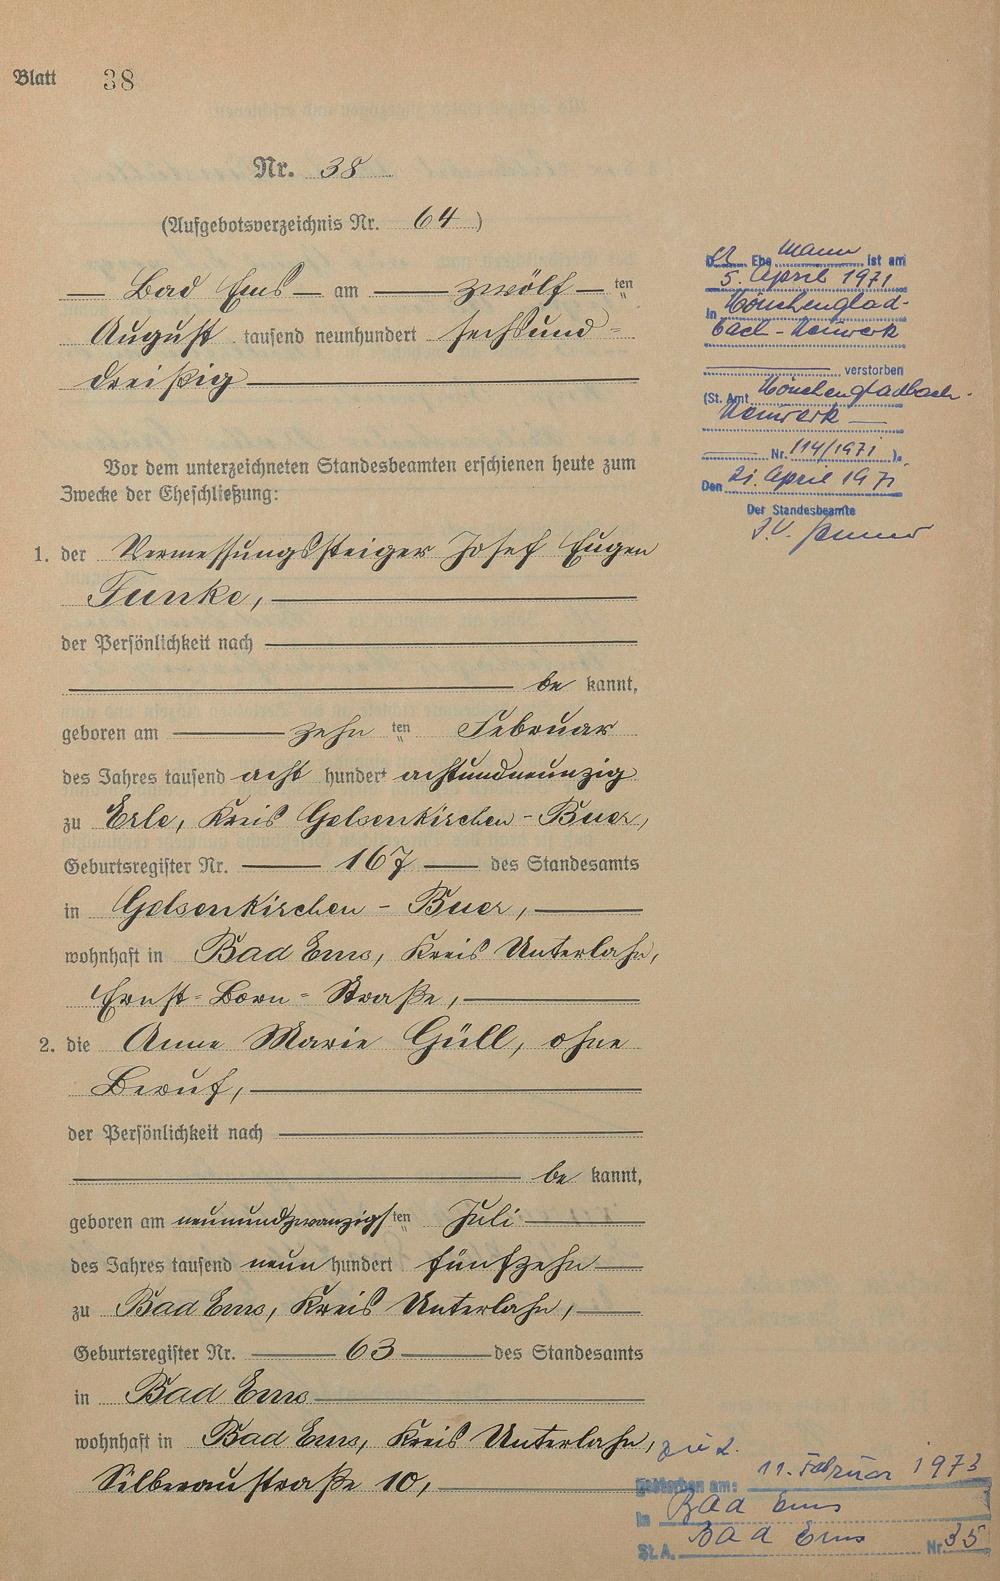 Blatt 38
Nr. 38
(Aufgebotsverzeichnis Nr. 64)
Bad Ems am zwölf ten
August tausend neunhundert sechsund=
dreißig
Vor dem unterzeichneten Standesbeamten erschienen heute zum
Zwecke der Eheschließung:
1. der Vermessungssteiger Josef Eugen
Funke,
der Persönlichkeit nach
be kannt,
geboren am zehn ten Februar
des Jahres tausend acht hundert achtundneunzig
zu Erle, Kreis Gelsenkirchen-Buer,
Geburtsregister Nr. 167 des Standesamts
in Gelsenkirchen - Buer,
wohnhaft in Bad Ems, Kreis Unterlahn,
Ernst=Born=Straße,
2. die Anne Marie Güll, ohne
Beruf,
der Persönlichkeit nach
be kannt,
geboren am neunundzwanzigsten Juli
des Jahres tausend neun hundert fünfzehn
zu Bad Ems, Kreis Unterlahn,
Geburtsregister Nr. 63 des Standesamts
in Bad Ems
wohnhaft in Bad Ems, Kreis Unterlahn,
Silberaustraße 10,
Der Ehemann ist am
5. April 1971
in Mönchenglad-
bach-Neuwerk
verstorben
(St. Amt Mönchengladbach-
Neuwerk
Nr. 114/1971).
Den 21. April 1971
Der Standesbeamte
J.V.
zu 2.
Gestorben am: 11. Februar 1973
in Bad Ems
St.A. Bad Ems Nr. 35